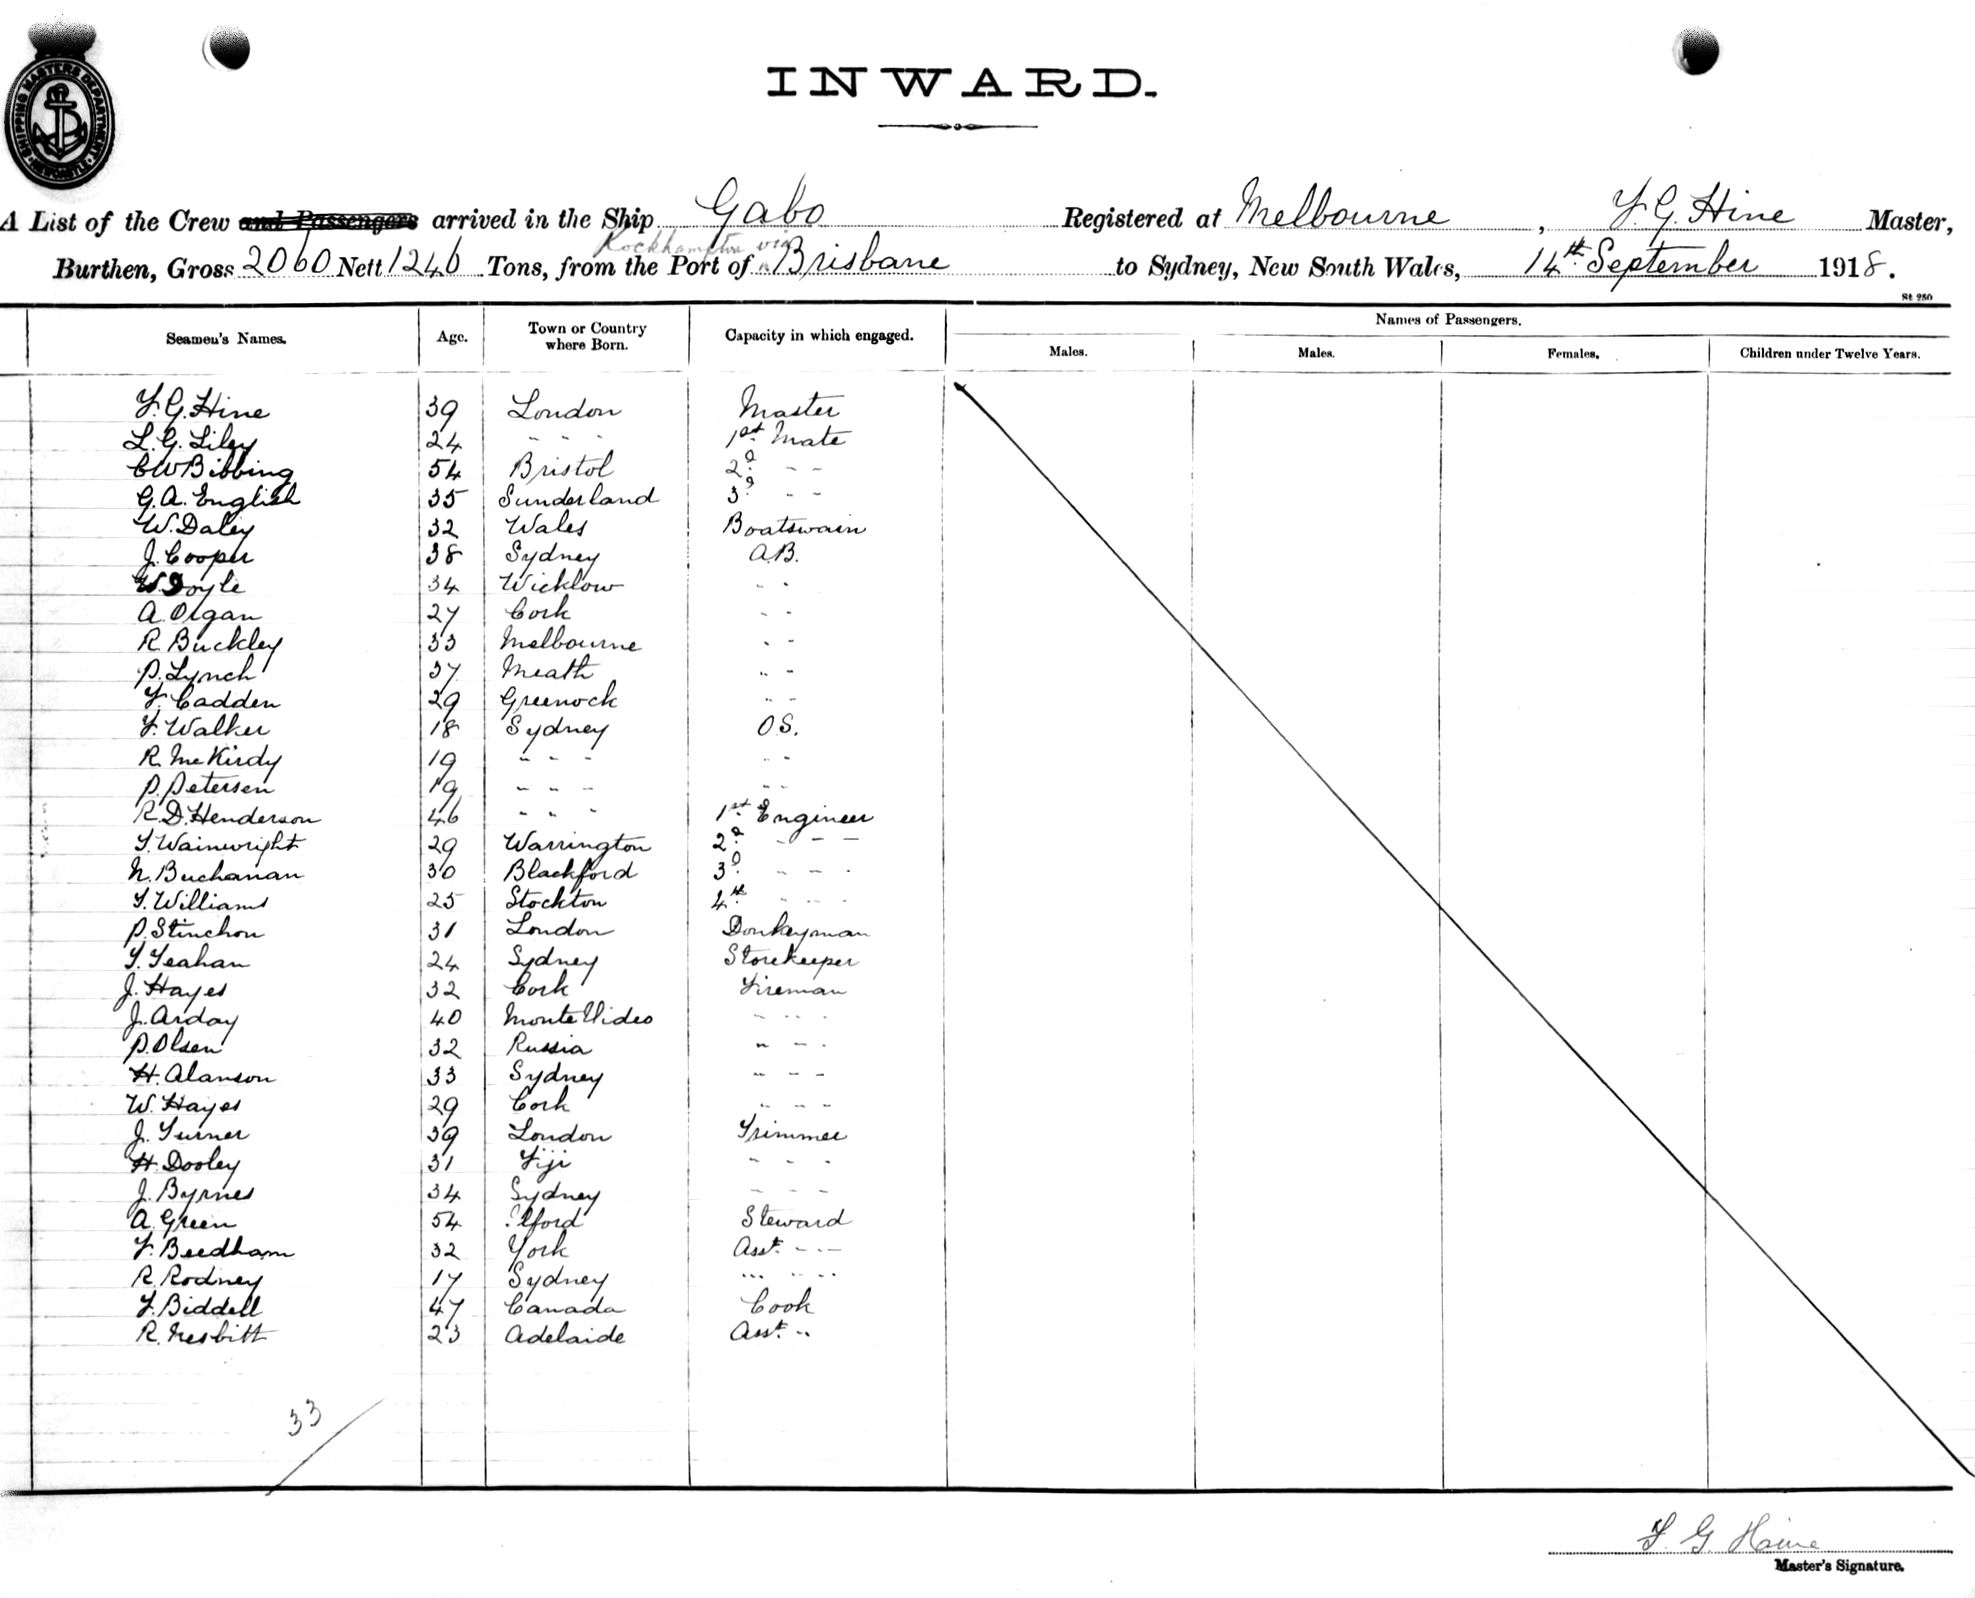 SHIPPING MASTERS DEPARTMENT NEWCASTLE
INWARD.
A List of the Crew and Passengers arrived in the Ship Gabo Registered at Melbourne, F. G. Hine Master,
Rockhampton via
Burthen, Gross 2060 Nett 1246 Tons, from the Port of Brisbane to Sydney, New South Wales, 14th September 1918.
St 280
Seamen's Names. Age. Town or Country where Born. Capacity in which engaged. Names of Passengers.
Males. Males. Females. Children under Twelve Years.
F. G. Hine 39 London Master
L. G. Liley 24 " " " 1st Mate
C W Bibbing 54 Bristol 2d. " "
G. A. English 35 Sunderland 3d. " "
W. Daley 32 Wales Boatswain
J. Cooper 38 Sydney A.B.
W. Doyle 34 Wicklow " "
A. Organ 27 Cork " "
R. Buckley 33 Melbourne " "
P. Lynch 37 Meath " "
F. Cadden 29 Greenock " "
F. Walker 18 Sydney O.S.
R. McKirdy 19 " " " " "
P. Petersen 19 " " " " "
R. D. Henderson 46 " " " 1st Engineer
T. Wainwright 29 Warrington 2d. " " "
N. Buchanan 30 Blackford 3d. " " "
T. Williams 25 Stockton 4th. " " "
P. Stinchon 31 London Donkeyman
T. Leahan 24 Sydney Storekeeper
J. Hayes 32 Cork Fireman
J. Arday 40 Monte Video " " "
P. Olsen 32 Russia " " "
H. Alanson 33 Sydney " " "
W. Hayes 29 Cork " " "
J. Turner 39 London Trimmer
H. Dooley 31 Fiji " " "
J. Byrnes 34 Sydney " " "
A. Green 54 Ilford Steward
F. Beedham 32 York Asst. " "
R. Rodney 17 Sydney " " "
F. Biddell 47 Canada Cook
R. Nesbitt 23 Adelaide Asst. "
33
F. G. Hine
Master's Signature.